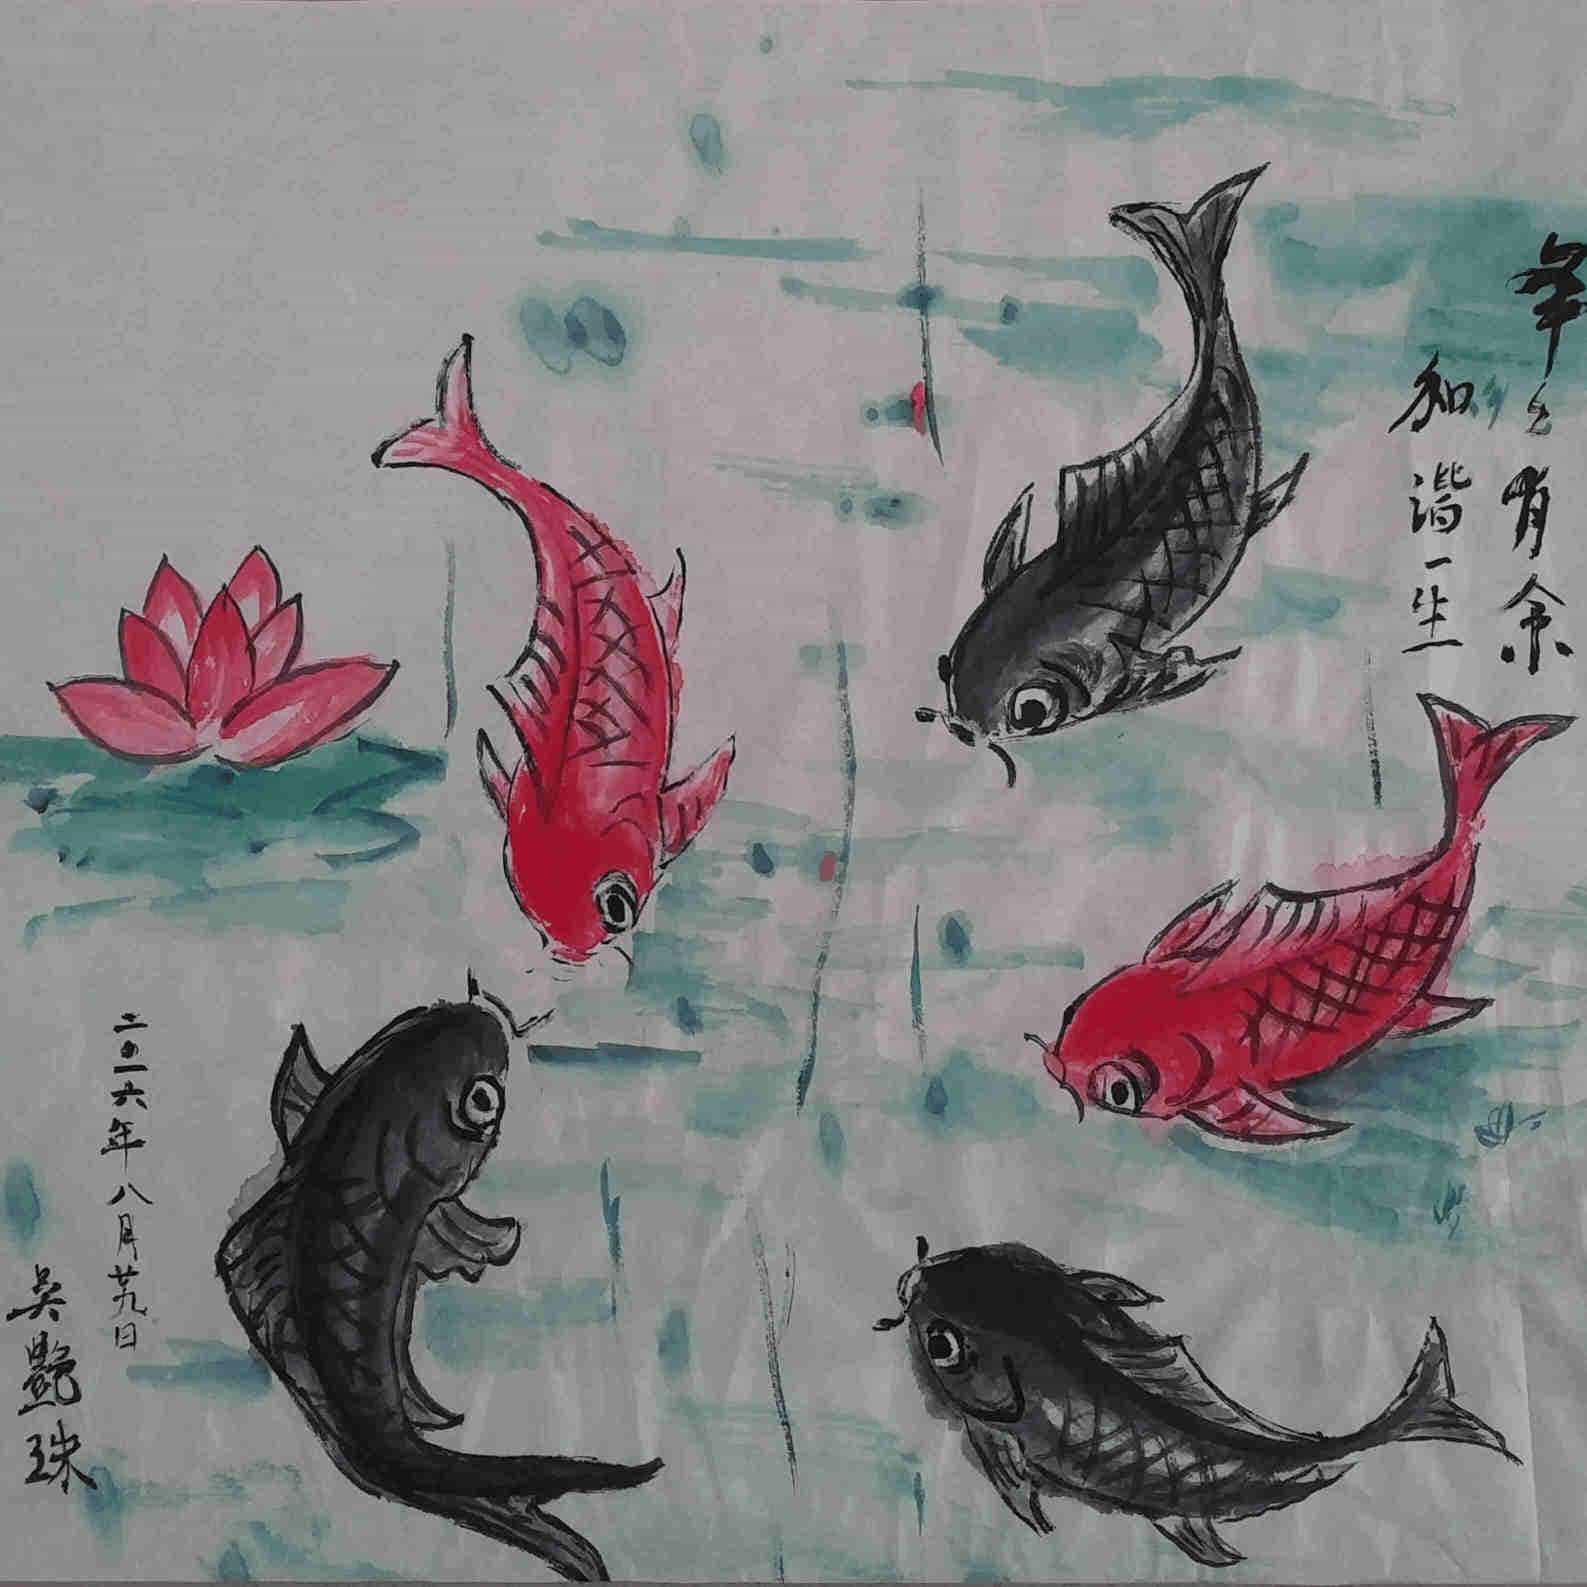 年〻有余
和谐一生
二〇一六年八月廿九日
吴艷珠